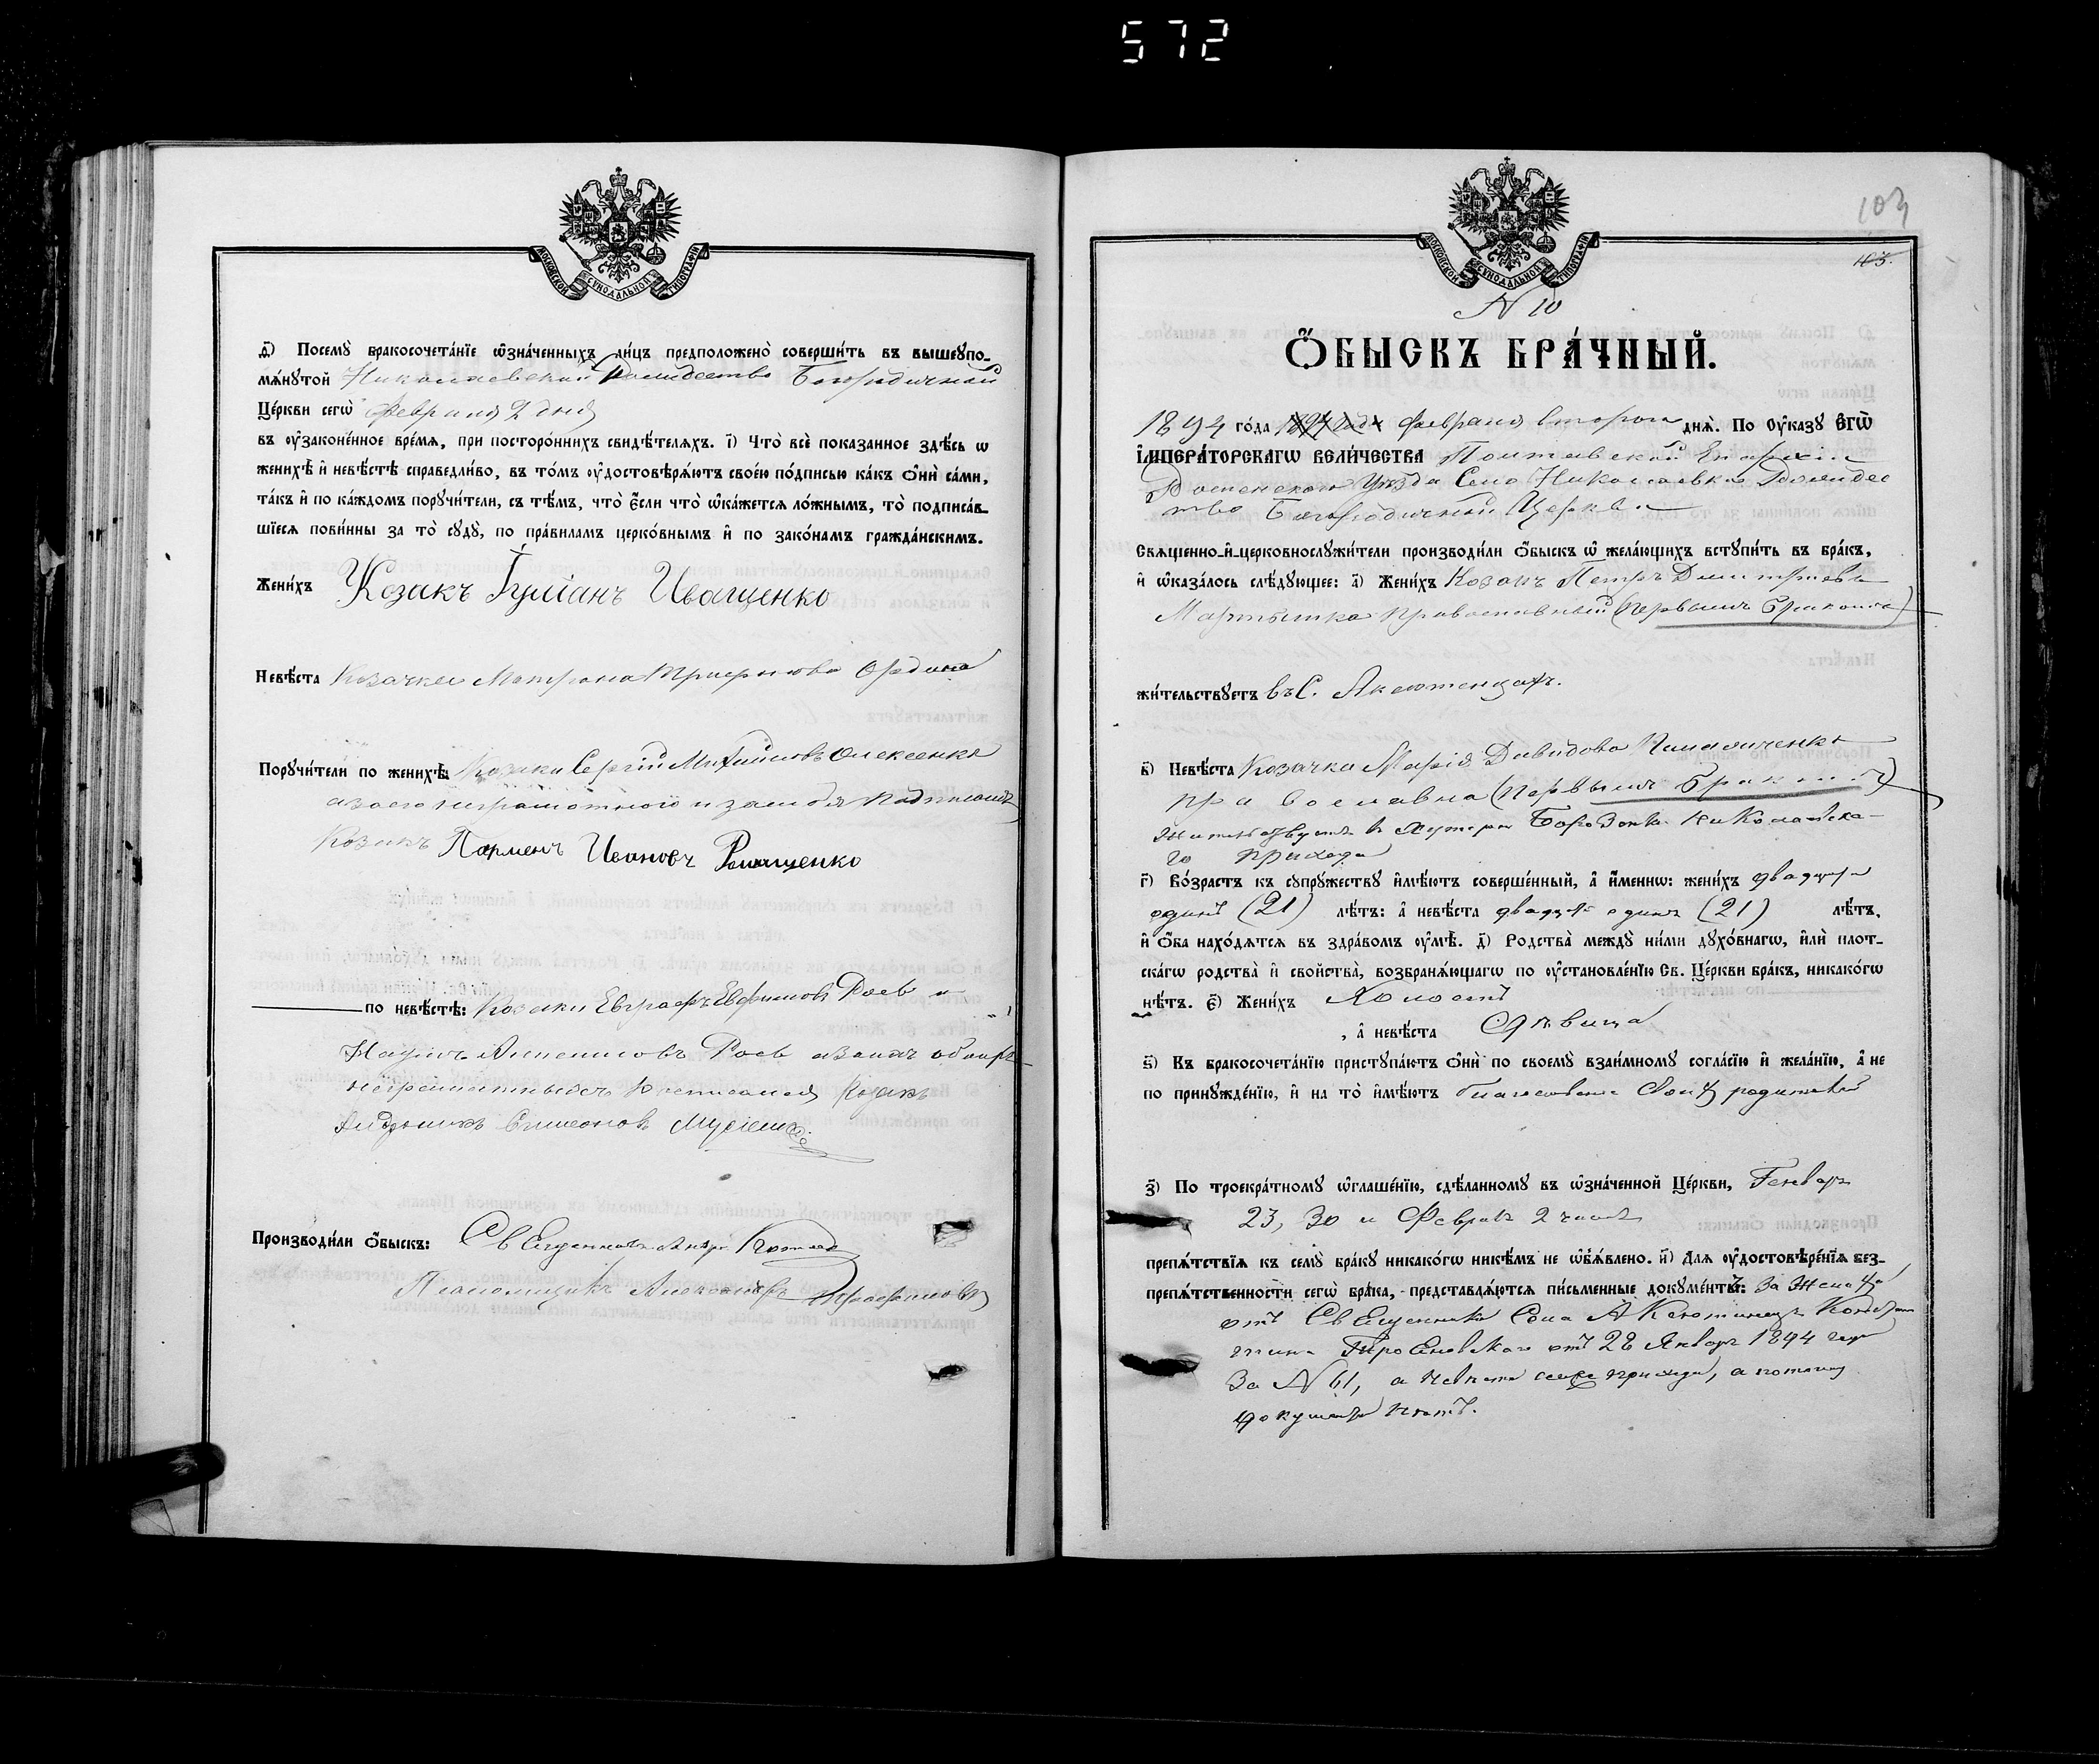 572
МОСКОВСКОЙ СѴНОДАЛЬНОЙ ТИПОГРАФІИ
д҃) Посемꙋ̀ бракосочета́нїе ѡ҆зна́ченныхъ ли́цъ предположено̀ соверши́ть въ вышеꙋпо-
мѧ́нꙋтой Николаевской Рождество Богородичной
Це́ркви сегѡ̀ февраля 2 дня
въ ᲂу҆законе́нное вре́мѧ, при посторо́ннихъ свидѣ́телѧхъ. і҃) Что̀ всѐ показанное здѣ́сь ѡ
женихѣ̀ и҆ невѣ́стѣ справедли́во, въ то́мъ ᲂу҆достовѣрѧ́ютъ свое́ю по́дписью ка́къ ѻ҆нѝ са́ми,
та́къ и҆ по ка́ждомъ порꙋчи́тели, съ тѣ́мъ, что̀ є҆́сли что̀ ѡ҆ка́жетсѧ ло́жнымъ, то̀ подписа́в-
шїесѧ пови́нны за то̀ сꙋдꙋ̀, по пра́виламъ церко́внымъ и҆ по зако́намъ гражда́нскимъ.
Жени́хъ Козакъ Іуліанъ Иващенко
Невѣ́ста Козачка Матрона Ордина
Порꙋчи́тели по женихѣ̀: Козаки Сергій Михайловъ Олексенко
а за его неграмотного и за себя подписался
Козакъ Парменъ Ивановъ Ромащенко
по невѣ́стѣ: Козаки Евграфъ Евфимовъ Роев и
Наумъ Роевъ а за ихъ обоихъ
неграмотныхъ Козакъ
Симеоновъ
Производи́ли ѻ҆́быскъ: Священникъ
Псаломщикъ Александръ
МОСКОВСКОЙ СѴНОДАЛЬНОЙ ТИПОГРАФІИ
103
N 10
Ѻ҆́БЫСКЪ БРА́ЧНЫЙ.
1894 го́да февраля второго днѧ̀. По ᲂу҆казꙋ Є҆гѡ̀
І҆МПЕРА́ТОРСКАГѠ ВЕЛИ́ЧЕСТВА Полтавской Епархіи
Роменского Уѣзда Село Николаевка Рождес
тво Богородичной Церкви
Свѧще́нно-и҆-церковнослꙋжи́тели производи́ли ѻ҆́быскъ ѡ҆ жела́ющихъ встꙋпи́ть въ бра́къ,
и҆ ѡ҆каза́лось слѣ́дꙋющее: а҃) Жени́хъ Козакъ Петръ Димитріевъ
Мартынко православный (первымъ бракомъ)
жи́тельствꙋетъ въ С. Аксютенцахъ.
в҃) Невѣ́ста Козачка Марія Давидова
православна (первымъ бракомъ)
жительствуетъ в хуторѣ Николаевска-
го прихода
г҃) Во́зрастъ къ сꙋпрꙋ́жествꙋ и҆мѣ́ютъ соверше́нный, а҆ и҆́меннѡ: жени́хъ двадцать
одинъ (21) лѣ́тъ: а҆ невѣ́ста двадцать одинъ (21) лѣ́тъ,
и҆ ѻ҆́ба нахо́дѧтсѧ въ здра́вомъ ᲂу҆мѣ̀. д҃) Родства̀ междꙋ̀ ни́ми дꙋхо́внагѡ, и҆лѝ плот-
ска́гѡ родства̀ и҆ сво́йства, возбранѧ́ющагѡ по ᲂу҆становле́нїю Св. Це́ркви бра́къ, никако́гѡ
нѣ́тъ. є҃) Жени́хъ Холостъ
, а҆ невѣ́ста Дѣвица
ѕ҃) Къ бракосочета́нїю пристꙋпа́ютъ ѻ҆нѝ по своемꙋ̀ взаи́мномꙋ согла́сїю и҆ жела́нїю, а҆ не
по принꙋжде́нїю, и҆ на то̀ и҆мѣ́ютъ благословеніе Своихъ родителей
з҃) По троекра́тномꙋ ѡ҆глаше́нїю, сдѣ́ланномꙋ въ ѡ҆зна́ченной Це́ркви, Генваря
23, 30 и Февраля 2 числѣ
препѧ́тствїѧ къ семꙋ̀ бра́кꙋ никако́гѡ никѣ́мъ не ѡ҆б̾ѧ́влено. и҃) Длѧ ᲂу҆достовѣре́нїѧ без-
препѧ́тственности сегѡ̀ бра́ка, представлѧ́ютсѧ пи́сьменные докꙋме́нты: За жениха
отъ Священника Села Аксютинецъ
отъ 28 Января 1894 года
За N 61, а невѣста сего прихода, а потому
документа нѣтъ.